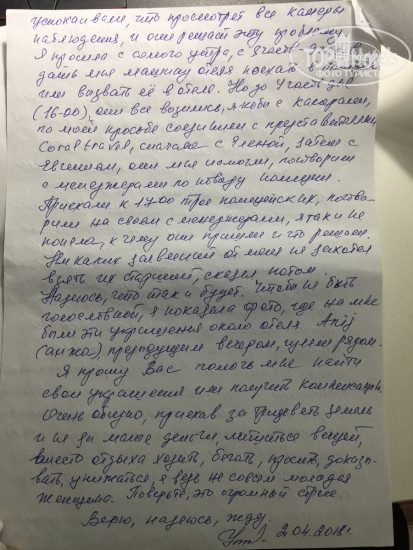 успокаивали, что просмотрят все камеры
наблюдения, и они решат эту проблему.
Я просила с самого утра, с
дать мне машину отеля поехать
или вызвать её в отель. Но до 4 часов дня
(16-00), они все возились, якобы с камерами,
по моей просьбе соединили с представителями
Coral travel, сначала с Еленой, затем с
Евгенией, они мне помогли, поговорили
с менеджерами по поводу полиции.
Приехали к 17.00 трое полицейских, погово-
рили на своём с менеджерами, я так и не
поняла, к чему они пришли и что решили.
Никаких заявлений от меня не захотел
взять их старший, сказал потом.
Надеюсь, что так и будет. Чтобы не быть
голословной, я показала фото, где на мне
были эти украшения около отеля Anij
(анжо) предыдущим вечером, гуляли рядом.
Я прошу Вас помочь мне найти
свои украшения или получить компенсацию.
Очень обидно, приехав за тридевять земель
и не за малые деньги, лишиться вещей,
вместо отдыха ходить, бегать, просить, доказы-
вать, унижаться, я ведь не совсем молодая
женщина. Поверьте, это огромный стресс
Верю, надеюсь, жду.
2.04.2018г.
ТОПХОТЕЛС
ФОТО ТУРИСТА